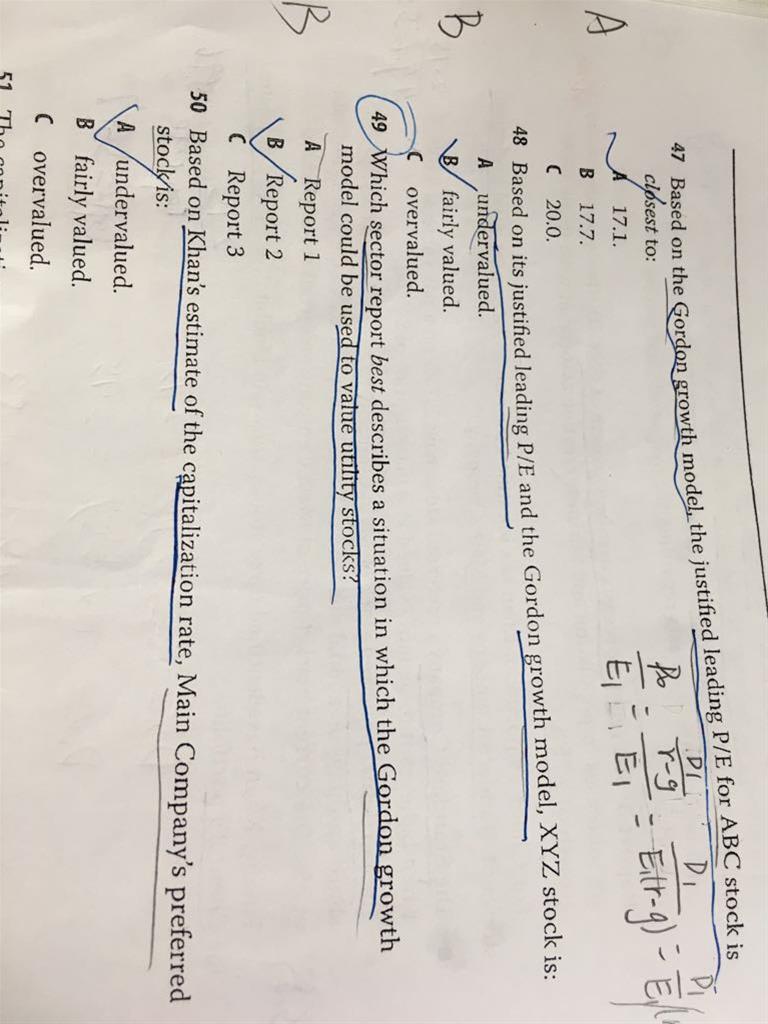 47 Based on the Gordon growth model, the justified leading P/E for ABC stock is
closest to:
A 17.1.
B 17.7.
C 20.0.
A
P0/E1 = D1/r-g / E1 = D1/E1(r-g) = D1/E1/(r
48 Based on its justified leading P/E and the Gordon growth model, XYZ stock is:
A undervalued.
B fairly valued.
C overvalued.
B
49 Which sector report best describes a situation in which the Gordon growth
model could be used to value utility stocks?
A Report 1
B Report 2
C Report 3
B
50 Based on Khan's estimate of the capitalization rate, Main Company's preferred
stock is:
A undervalued.
B fairly valued.
C overvalued.
51 The